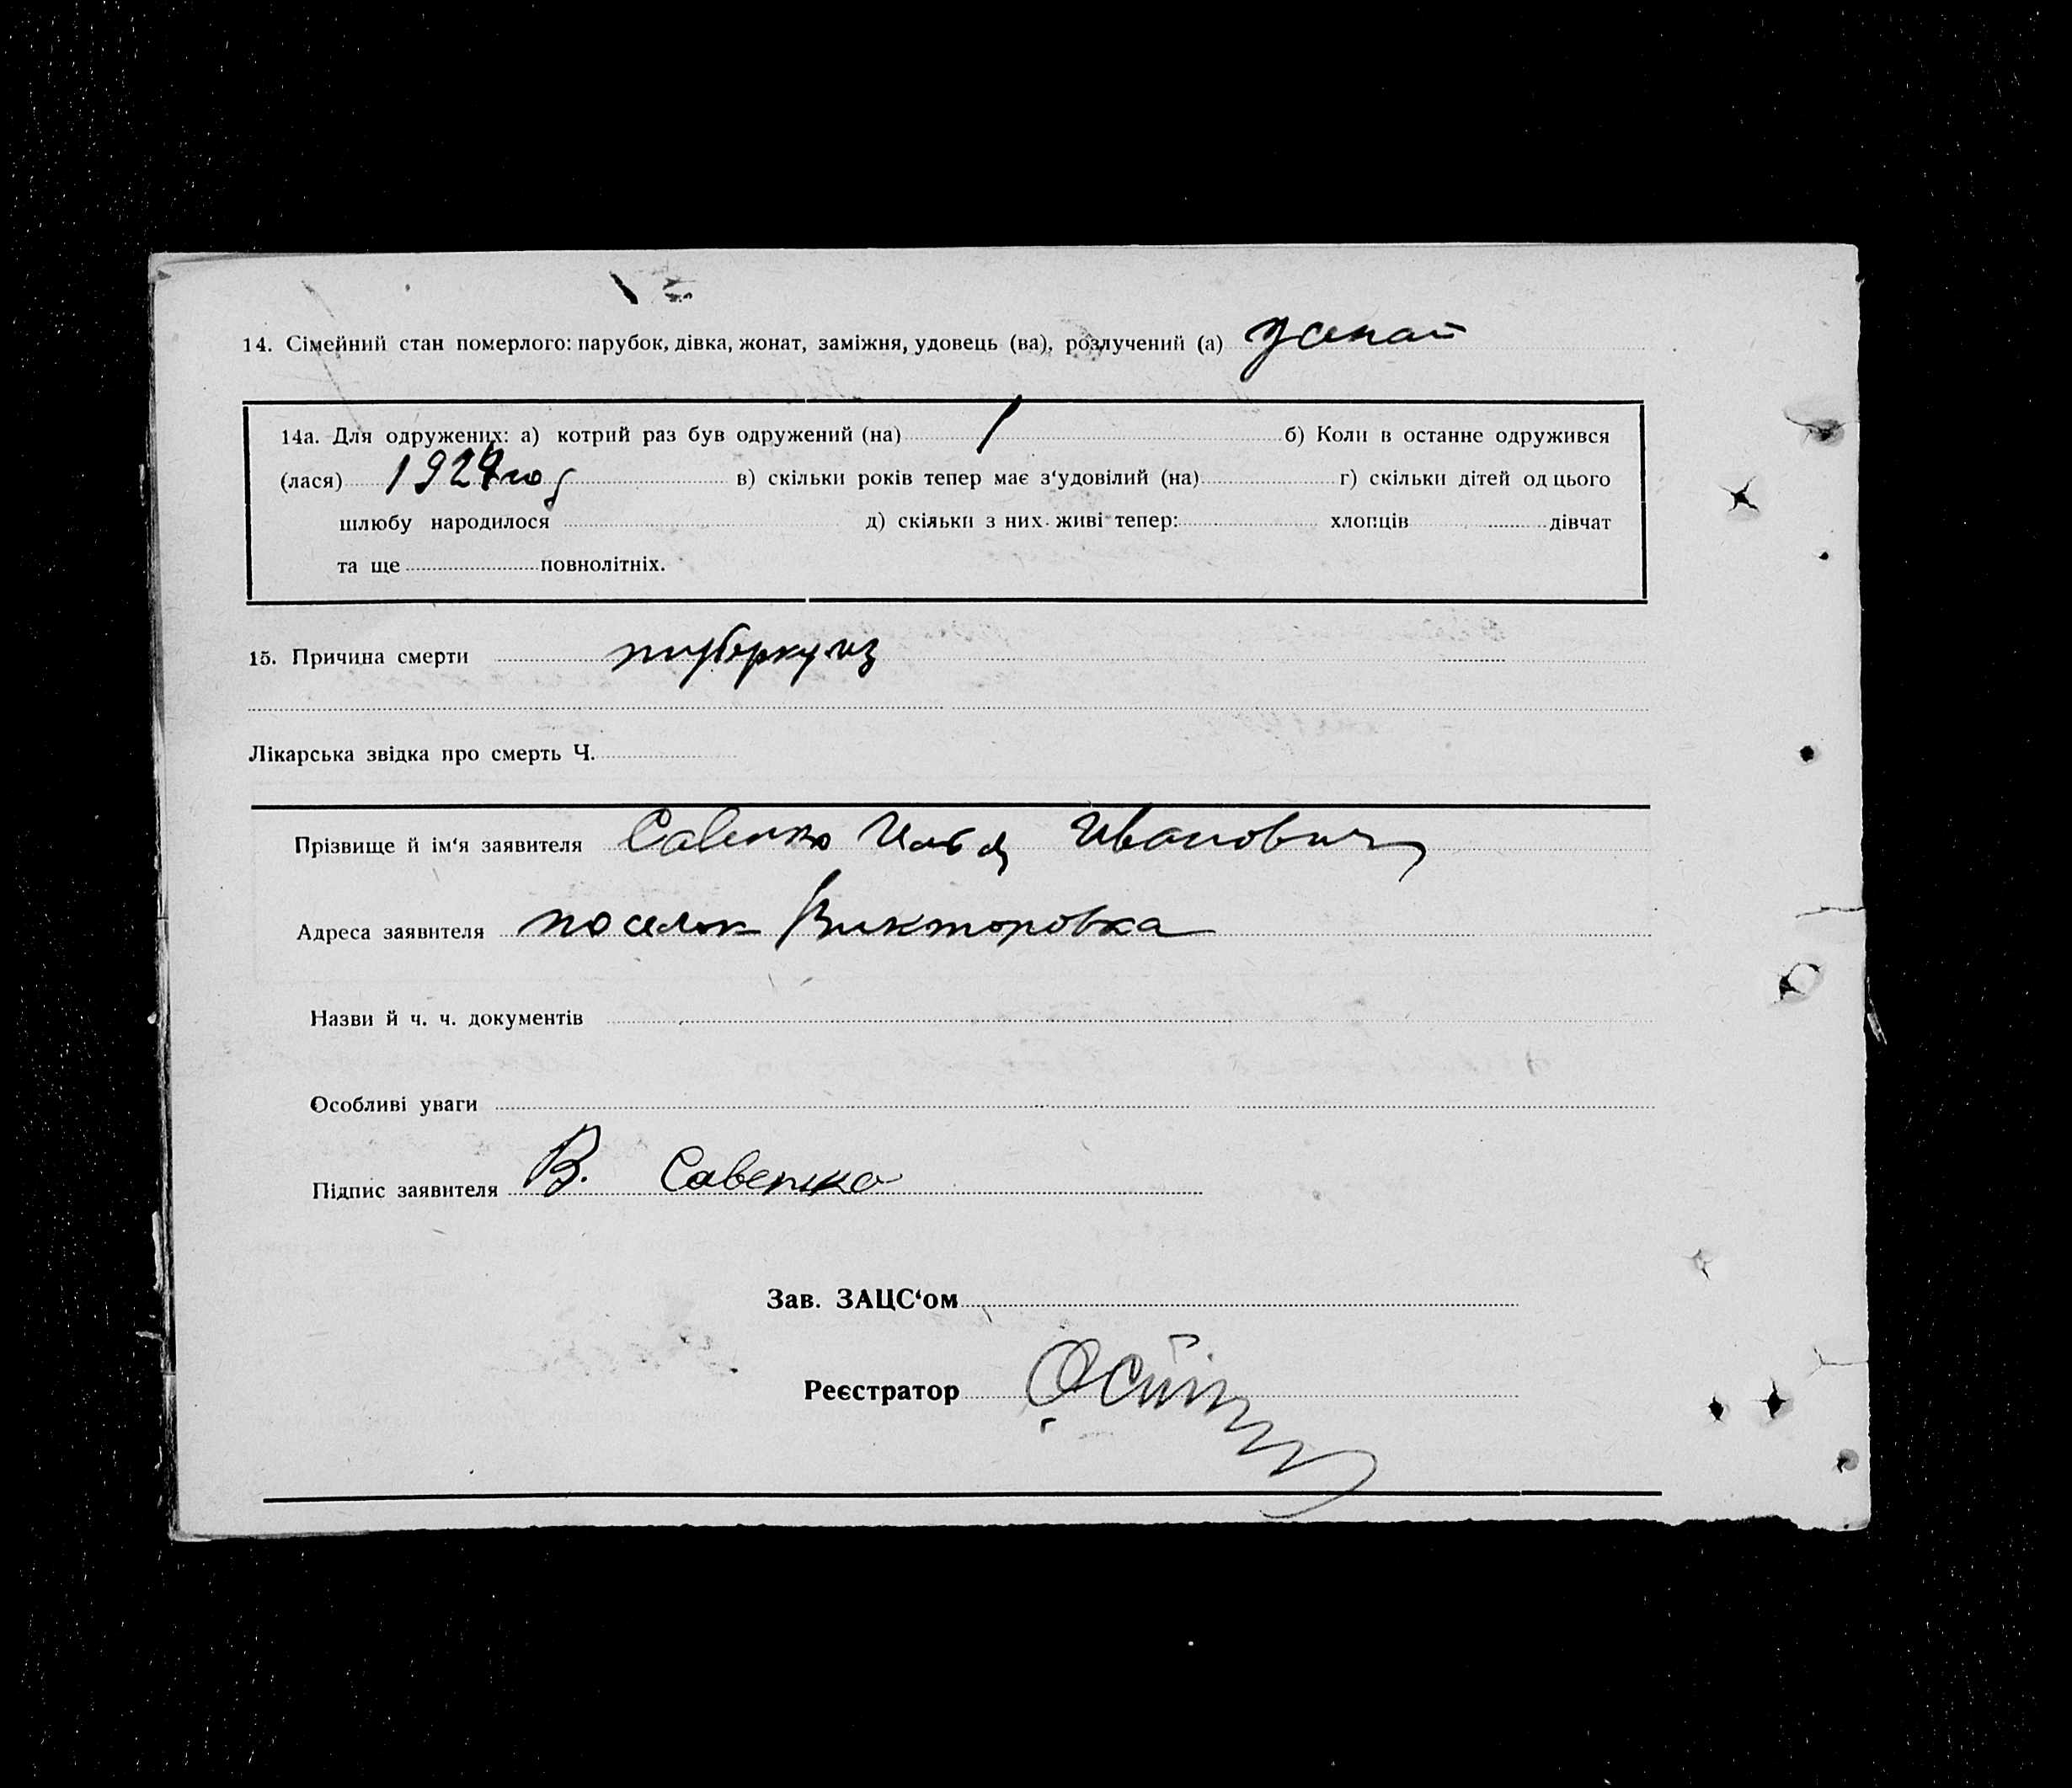 14. Сімейний стан померлого: парубок, дівка, жонат, заміжня, удовець (ва), розлучений (а) женат
14а. Для одружених: а) котрий раз був одружений (на) 1 б) Коли в останнє одружився
(лася) 1929 год в) скільки років тепер має з‘удовілий (на) г) скільки дітей од цього
шлюбу народилося д) скільки з них живі тепер: хлопців дівчат
та ще повнолітніх.
15. Причина смерти туберкулз
Лікарська звідка про смерть Ч.
Прізвище й ім‘я заявителя Савенко Илья Иванович
Адреса заявителя поселок Викторовка
Назви й ч. ч. документів
Особливі уваги
Підпис заявителя В. Савенко
Зав. ЗАЦС‘ом
Реєстратор